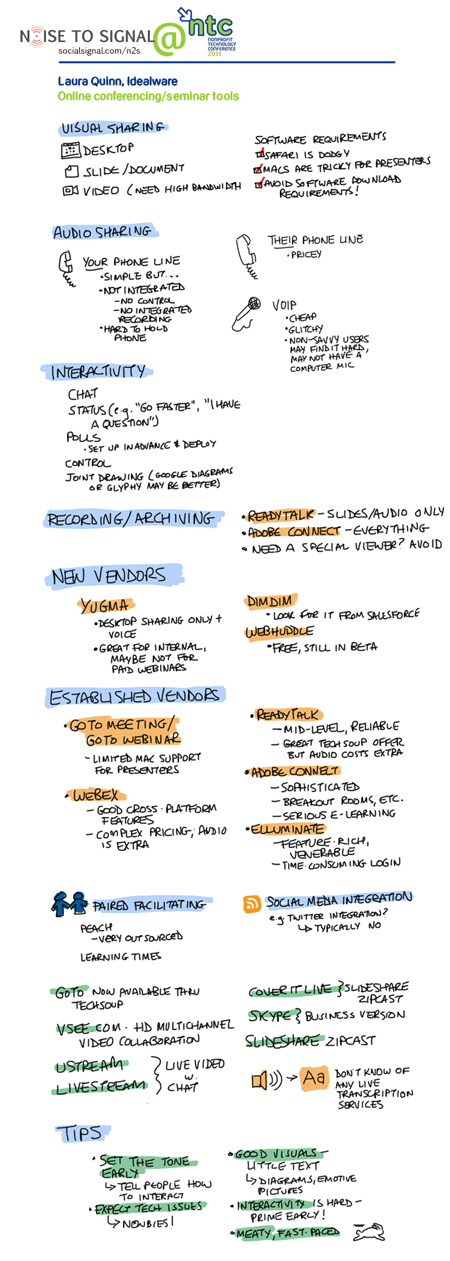 NOISE TO SIGNAL
socialsignal.com/n2s
@ntc
NONPROFIT
TECHNOLOGY
CONFERENCE
2011
Laura Quinn, Idealware
Online conferencing/seminar tools
VISUAL SHARING
DESKTOP
SLIDE/DOCUMENT
VIDEO (NEED HIGH BANDWIDTH
SOFTWARE REQUIREMENTS
SAFARI IS DODGY
MACS ARE TRICKY FOR PRESENTERS
AVOID SOFTWARE DOWNLOAD
REQUIREMENTS!
AUDIO SHARING
YOUR PHONE LINE
• SIMPLE BUT...
• NOT INTEGRATED
– NO CONTROL
– NO INTEGRATED
RECORDING
• HARD TO HOLD
PHONE
THEIR PHONE LINE
• PRICEY
VOIP
• CHEAP
• GLITCHY
• NON-SAVVY USERS
MAY FIND IT HARD,
MAY NOT HAVE A
COMPUTER MIC
INTERACTIVITY
CHAT
STATUS (e.g. "GO FASTER", "I HAVE
A QUESTION")
POLLS
• SET UP IN ADVANCE & DEPLOY
CONTROL
JOINT DRAWING (GOOGLE DIAGRAMS
OR GLYPHY MAY BE BETTER)
RECORDING/ARCHIVING
• READYTALK – SLIDES/AUDIO ONLY
• ADOBE CONNECT – EVERYTHING
• NEED A SPECIAL VIEWER? AVOID
NEW VENDORS
YUGMA
• DESKTOP SHARING ONLY +
VOICE
• GREAT FOR INTERNAL,
MAYBE NOT FOR
PAID WEBINARS
DIMDIM
• LOOK FOR IT FROM SALESFORCE
WEBHUDDLE
• FREE, STILL IN BETA
ESTABLISHED VENDORS
• GOTO MEETING/
GOTO WEBINAR
– LIMITED MAC SUPPORT
FOR PRESENTERS
• WEBEX
– GOOD CROSS-PLATFORM
FEATURES
– COMPLEX PRICING, AUDIO
IS EXTRA
• READYTALK
– MID-LEVEL, RELIABLE
– GREAT TECHSOUP OFFER
BUT AUDIO COSTS EXTRA
• ADOBE CONNECT
– SOPHISTICATED
– BREAKOUT ROOMS, ETC.
– SERIOUS E-LEARNING
• ELLUMINATE
– FEATURE-RICH,
VENERABLE
– TIME-CONSUMING LOGIN
PAIRED FACILITATING
PEACH
– VERY OUTSOURCED
LEARNING TIMES
SOCIAL MEDIA INTEGRATION
e.g. TWITTER INTEGRATION?
↳ TYPICALLY NO
GOTO NOW AVAILABLE THRU
TECHSOUP
VSEE.COM - HD MULTICHANNEL
VIDEO COLLABORATION
USTREAM
LIVESTREAM
LIVE VIDEO
W.
CHAT
COVER IT LIVE } SLIDESHARE
ZIPCAST
SKYPE } BUSINESS VERSION
SLIDESHARE ZIPCAST
→ Aa
DON'T KNOW OF
ANY LIVE
TRANSCRIPTION
SERVICES
TIPS
• SET THE TONE
EARLY
↳ TELL PEOPLE HOW
TO INTERACT
• EXPECT TECH ISSUES
↳ NEWBIES!
• GOOD VISUALS –
LITTLE TEXT
↳ DIAGRAMS, EMOTIVE
PICTURES
• INTERACTIVITY IS HARD –
PRIME EARLY!
• MEATY, FAST-PACED